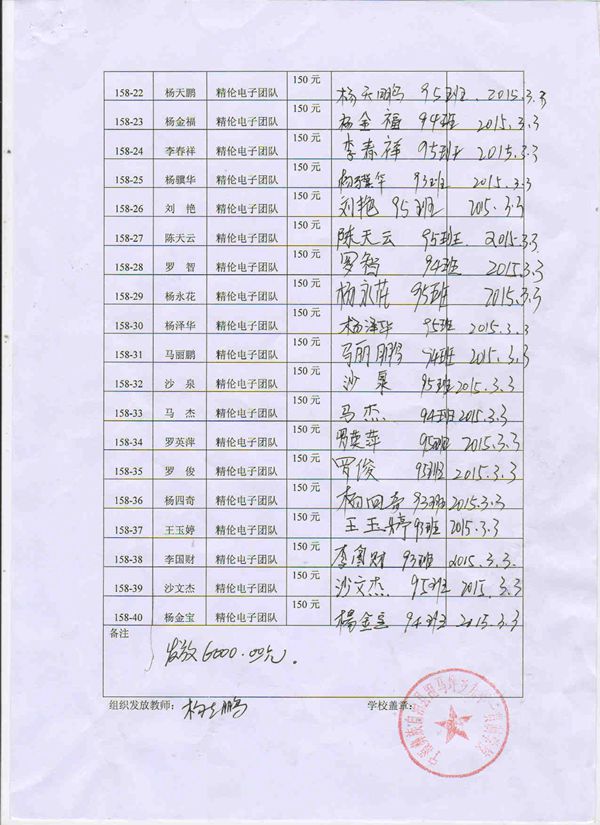 158-22 杨天鹏 精伦电子团队 150 元 杨天鹏 95班 2015.3.3
158-23 杨金福 精伦电子团队 150 元 杨金福 94班 2015.3.3
158-24 李春祥 精伦电子团队 150 元 李春祥 95班 2015.3.3
158-25 杨骥华 精伦电子团队 150 元 杨骥华 93班 2015.3.3
158-26 刘 艳 精伦电子团队 150 元 刘艳 95班 2015.3.3
158-27 陈天云 精伦电子团队 150 元 陈天云 95班 2015.3.3
158-28 罗 智 精伦电子团队 150 元 罗智 94班 2015.3.3
158-29 杨永花 精伦电子团队 150 元 杨永花 95班 2015.3.3
158-30 杨泽华 精伦电子团队 150 元 杨泽华 95班 2015.3.3
158-31 马丽鹏 精伦电子团队 150 元 马丽鹏 94班 2015.3.3
158-32 沙 泉 精伦电子团队 150 元 沙泉 95班 2015.3.3
158-33 马 杰 精伦电子团队 150 元 马杰 94班 2015.3.3
158-34 罗英萍 精伦电子团队 150 元 罗英萍 95班 2015.3.3
158-35 罗 俊 精伦电子团队 150 元 罗俊 93班 2015.3.3
158-36 杨四奇 精伦电子团队 150 元 杨四奇 93班 2015.3.3
158-37 王玉婷 精伦电子团队 150 元 王玉婷 93班 2015.3.3
158-38 李国财 精伦电子团队 150 元 李国财 93班 2015.3.3.
158-39 沙文杰 精伦电子团队 150 元 沙文杰 95班 2015.3.3
158-40 杨金宝 精伦电子团队 150 元 楊金宝 94班 2015.3.3
备注
发放6000.00元.
组织发放教师: 学校盖章: